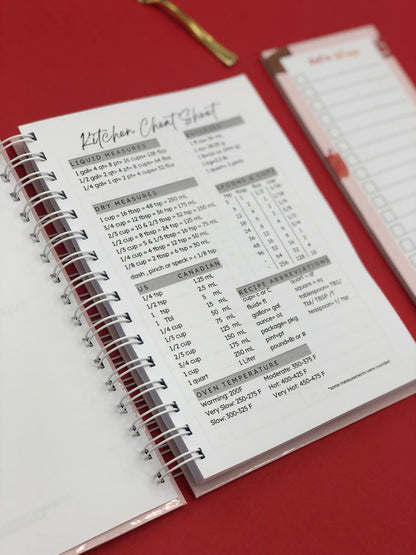 Kitchen Cheat Sheet
LIQUID MEASURES
1 gal= 4 qt= 8 pt= 16 cups= 128 floz
1/2 gal= 2 qt= 4 pt= 8 cups= 64 floz
1/4 gal= 1 qt= 2 pt= 4 cups= 32 floz
DRY MEASURES
1 cup = 16 tbsp = 48 tsp = 250 mL
3/4 cup = 12 tbsp = 36 tsp = 175 mL
2/3 cup = 10 & 2/3 tbsp = 32 tsp = 150 mL
1/2 cup = 8 tbsp = 24 tsp = 125 mL
1/3 cup = 5 & 1/3 tbsp = 16 tsp = 75 mL
1/4 cup = 4 tbsp = 12 tsp = 50 mL
1/8 cup = 2 tbsp = 6 tsp = 30 mL
dash , pinch or speck = < 1/8 tsp
SPOONS & CUPS
tsp tbsp floz cup
US CANADIAN
1/4 tsp 1.25 mL
1/2 tsp 2.5 mL
1 tsp 5 mL
1 Tbl 15 mL
1/4 cup 50 mL
1/3 cup 75 mL
1/2 cup 125 mL
2/3 cup 150 mL
3/4 cup 175 mL
1 cup 250 mL
1 quart 1 Liter
RECIPE ABBREVIATIONS
cup= c or C
fluid= fl
gallon= gal
ounce= oz
package= pkg
pint=pt
pound=lb or #
quart = qt
square = sq
tablespoon= TBL/
Tbl/ TBSP /T
teaspoon= t/ tsp
OVEN TEMPERATURE
Warming: 200F
Very Slow: 250-275 F
Slow: 300-325 F
Moderate: 350-375 F
Hot: 400-425 F
Very Hot: 450-475 F
*some measurements were rounded